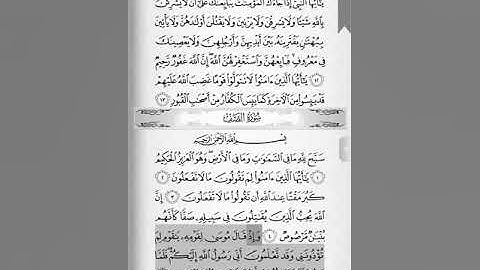 يَٰٓأَيُّهَا ٱلنَّبِيُّ إِذَا جَآءَكَ ٱلْمُؤْمِنَٰتُ يُبَايِعْنَكَ عَلَىٰٓ أَن لَّا يُشْرِكْنَ
بِٱللَّهِ شَيْـًٔا وَلَا يَسْرِقْنَ وَلَا يَزْنِينَ وَلَا يَقْتُلْنَ أَوْلَٰدَهُنَّ وَلَا يَأْتِينَ
بِبُهْتَٰنٍ يَفْتَرِينَهُۥ بَيْنَ أَيْدِيهِنَّ وَأَرْجُلِهِنَّ وَلَا يَعْصِينَكَ
فِى مَعْرُوفٍ فَبَايِعْهُنَّ وَٱسْتَغْفِرْ لَهُنَّ ٱللَّهَ إِنَّ ٱللَّهَ غَفُورٌ رَّحِيمٌ
١٢ يَٰٓأَيُّهَا ٱلَّذِينَ ءَامَنُوا۟ لَا تَتَوَلَّوْا۟ قَوْمًا غَضِبَ ٱللَّهُ عَلَيْهِمْ
قَدْ يَئِسُوا۟ مِنَ ٱلْءَاخِرَةِ كَمَا يَئِسَ ٱلْكُفَّارُ مِنْ أَصْحَٰبِ ٱلْقُبُورِ ١٣
سُورَةُ الصَّفِّ
بِسْمِ ٱللَّهِ ٱلرَّحْمَٰنِ ٱلرَّحِيمِ
سَبَّحَ لِلَّهِ مَا فِى ٱلسَّمَٰوَٰتِ وَمَا فِى ٱلْأَرْضِ وَهُوَ ٱلْعَزِيزُ ٱلْحَكِيمُ
١ يَٰٓأَيُّهَا ٱلَّذِينَ ءَامَنُوا۟ لِمَ تَقُولُونَ مَا لَا تَفْعَلُونَ ٢
كَبُرَ مَقْتًا عِندَ ٱللَّهِ أَن تَقُولُوا۟ مَا لَا تَفْعَلُونَ ٣ إِنَّ
ٱللَّهَ يُحِبُّ ٱلَّذِينَ يُقَٰتِلُونَ فِى سَبِيلِهِۦ صَفًّا كَأَنَّهُم
بُنْيَٰنٌ مَّرْصُوصٌ ٤ وَإِذْ قَالَ مُوسَىٰ لِقَوْمِهِۦ يَٰقَوْمِ لِمَ
تُؤْذُونَنِى وَقَد تَّعْلَمُونَ أَنِّى رَسُولُ ٱللَّهِ إِلَيْكُمْ فَلَمَّا